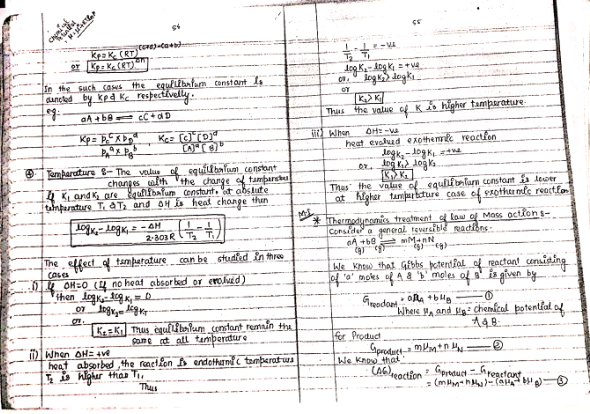 54
Kp = Kc (RT)^(c+d)-(a+b)
or Kp = Kc (RT)^Δn
In the such cases the equilibrium constant is
denoted by Kp & Kc respectively.
eg.
aA + bB ⇌ cC + dD
Kp = Pc^c × PD^d / PA^a × PB^b    Kc = [C]^c [D]^d / [A]^a [B]^b
Temperature :- The value of equilibrium constant
changes with the change of temperature
If K1 and K2 are equilibrium constant, at absolute
temperature T1 & T2 and ΔH is heat change then
log K2 - log K1 = -ΔH / 2.303R [1/T2 - 1/T1]
The effect of temperature can be studied in three
cases
i) If ΔH=0 (If no heat absorbed or evolved)
then log K2 - log K1 = 0
or log K2 = log K1
or.
K2 = K1 Thus equilibrium constant remain the
same at all temperature
ii) When ΔH = +ve
heat absorbed, the reaction is endothermic temperature
T2 is higher than T1.
Thus
55
1/T2 - 1/T1 = -ve
log K2 - log K1 = +ve
or, log K2 > log K1
or
K2 > K1
Thus the value of K is higher temperature.
iii) When ΔH = -ve
heat evolved exothermic reaction
log K2 - log K1 = +ve
or, log K1 > log K2
K1 > K2
Thus the value of equilibrium constant is lower
at higher temperature case of exothermic reaction
* Thermodynamics treatment of law of Mass action :-
Consider a general reversible reactions.
aA + bB ⇌ mM + nN
(g) (g) (g) (g)
We know that Gibbs potential of reactant considering
of 'a' moles of A & 'b' moles of B is given by
Greactant = aμA + bμB — ①
Where μA and μB = chemical potential of
A & B.
for Product
Gproduct = mμM + nμN — ②
We know that
(ΔG)reaction = Gproduct - Greactant
= (mμM + nμN) - (aμA + bμB) — ③